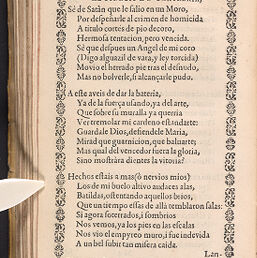 Sé de Satàn que le salio en vn Moro,
Por despeñarle al crimen de homicida
A titulo cortès de pio decoro,
Hermosa tentacion, pero vencida.
Sè que despues vn Angel de mi coro
(Digo alguazil de vara, y ley torcida)
Movio el herrado pie tras el desnudo,
Mas no bolverle, si alcançarle pudo.
A este aveis de dar la bateria,
Ya de la fuerça vsando, ya del arte,
Que sobre su muralla ya querria
Ver tremolar mi cardeno estandarte:
Guardale Dios, defiendele Maria,
Mirad que guarnicion, que baluarte;
Mas qual del vencedor fuera la gloria,
Sino mostràra dientes la vitoria?
Hechos estais a mas (ò nervios mios)
Los de mi buelo altivo audaces alas,
Batildas, ostentando aquellos brios,
Que vn tiempo essas de allà temblaron salas:
Si agora soterrados, i sombrios
Nos vemos, ya los pies en las escalas
Nos viò el empyreo muro, i fue indevida
A vn bel subir tan misera caida.
Lan-